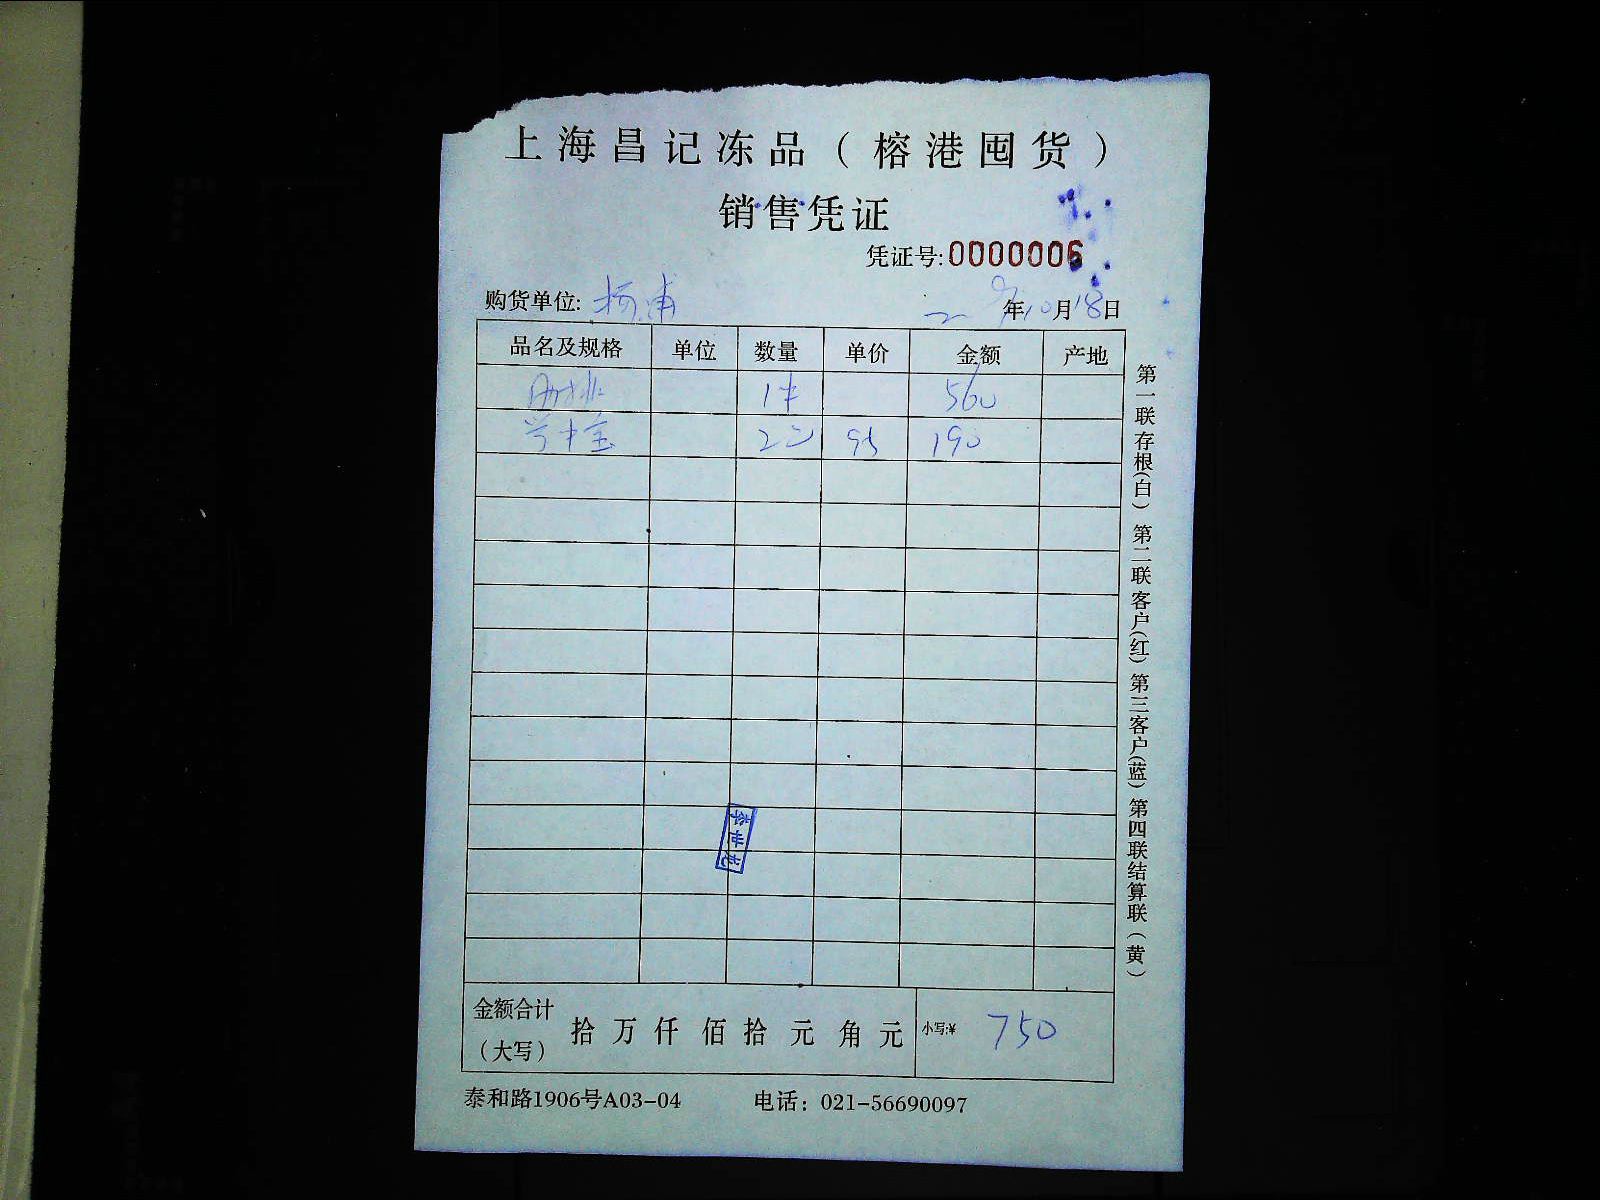 上海昌记冻品（榕港囤货）
销售凭证
凭证号:0000006
购货单位: 杨浦 年10月18日
品名及规格 单位 数量 单价 金额 产地
1件 560
2 95 190
金额合计（大写） 拾 万 仟 佰 拾 元 角 元 小写:¥ 750
泰和路1906号A03-04 电话：021-56690097
第一联存根(白) 第二联客户(红) 第三客户(蓝) 第四联结算联(黄)